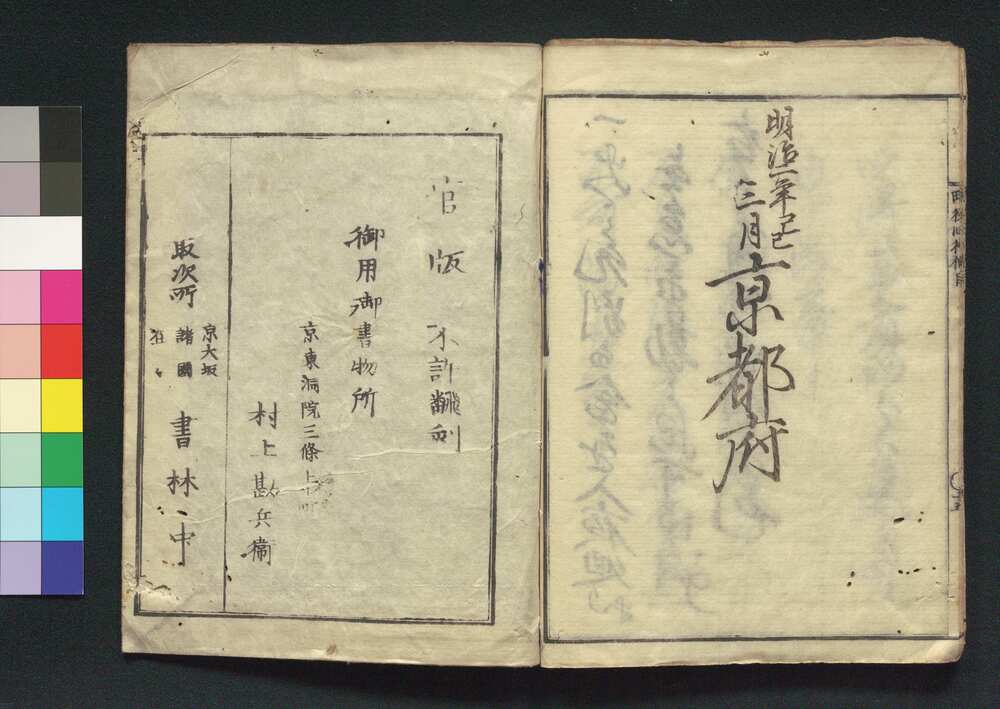 明治二年己巳
三月
京都府
官版 不許翻刻
御用御書物所
京東洞院三條上ル町
村上勘兵衛
取次所
京大坂
諸國
在々
書林中